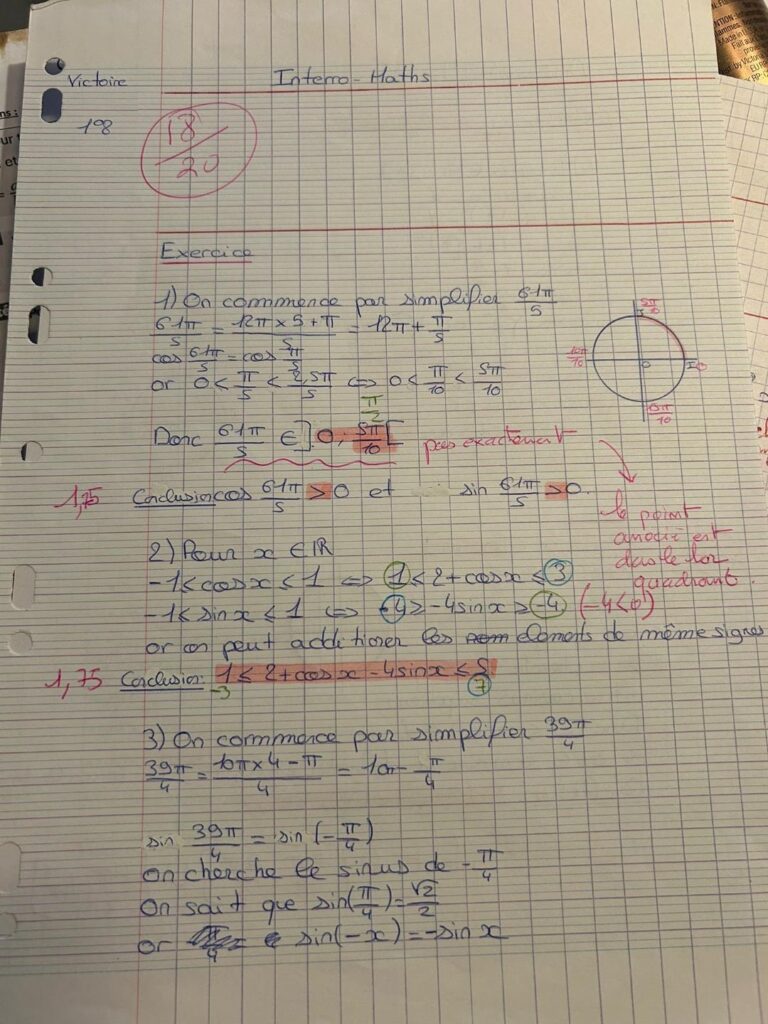 Victoire
Interro - Maths
1°8
18/20
Exercice
1) On commence par simplifier 61π/5
61π/5 = (12π x 5 + π)/5 = 12π + π/5
cos 61π/5 = cos π/5
or 0 < π/5 < 2,5π/5 ⇔ 0 < π/10 < 5π/10
π/2
Donc 61π/5 ∈ ]0; 5π/10[ pas exactement
1,75 Conclusion cos 61π/5 > 0 et sin 61π/5 > 0.
le point
associé est
dans le 1er
quadrant.
2) Pour x ∈ ℝ
-1 ≤ cos x ≤ 1 ⇔ 1 ≤ 2 + cos x ≤ 3
-1 ≤ sin x ≤ 1 ⇔ 4 ≥ -4 sin x ≥ -4 (-4<0)
or on peut additioner les elements de même signes
1,75 Conclusion: 1 ≤ 2 + cos x - 4 sin x ≤ 5
-3 7
3) On commence par simplifier 39π/4
39π/4 = (10π x 4 - π)/4 = 10π - π/4
sin 39π/4 = sin (-π/4)
on cherche le sinus de -π/4
On sait que sin(π/4) = √2/2
or sin(-x) = -sin x